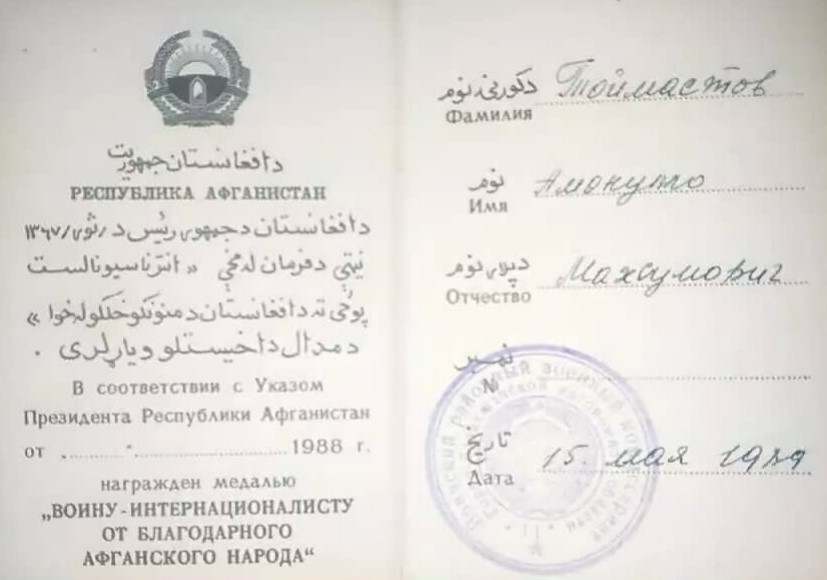 دافغانستان جمهوریت
РЕСПУБЛИКА АФГАНИСТАН
دافغانستان دجمهوری رئیس د / ثور / ۱۳۶۷
نیټې دفرمان له مخې « انترناسیونالست
پوځی ته دافغانستان د منونکو خلکو له خوا »
دمدال داخیستلو ویاړ لری .
В соответствии с Указом
Президента Республики Афганистан
от ........ " ................ 1988 г.
награжден медалью
„ВОИНУ-ИНТЕРНАЦИОНАЛИСТУ
ОТ БЛАГОДАРНОГО
АФГАНСКОГО НАРОДА“
دکورنۍ نوم Тоймастов
Фамилия
نوم
Имя
دپلار نوم Махсумович
Отчество
نمبر
№
تاریخ 15. мая 1989
Дата
районный военный комиссариат